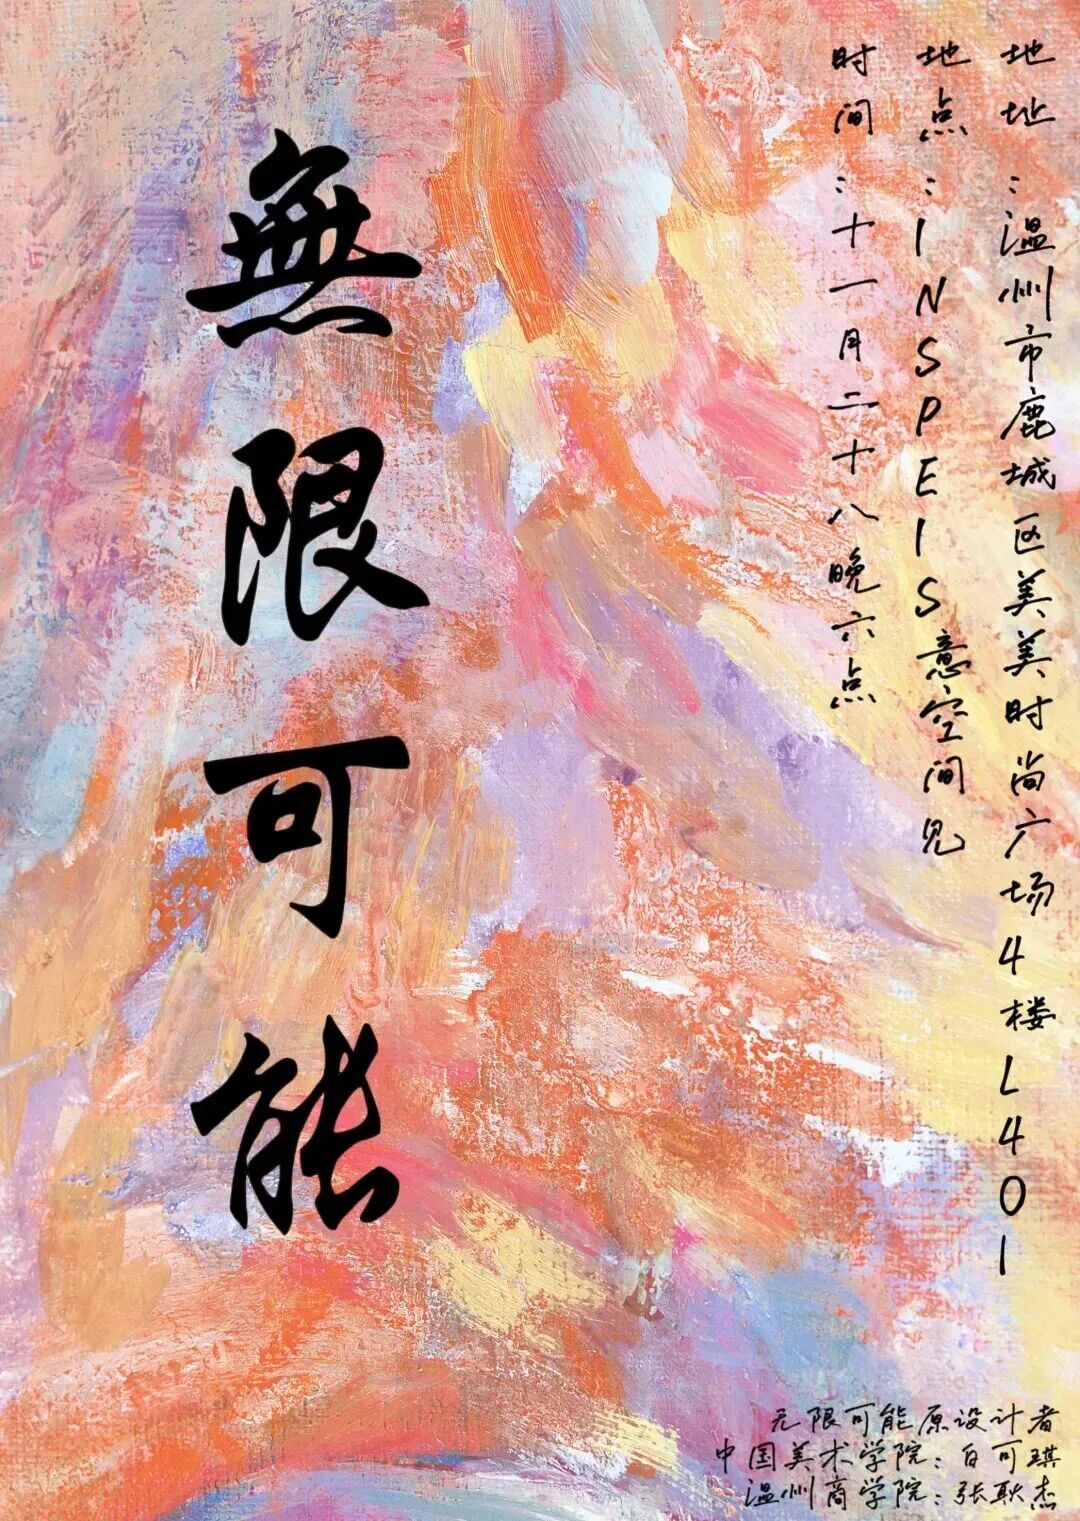 地址：温州市鹿城区美美时尚广场4楼L401
地点：INSPEIS意空间见
时间：十一月二十八晚六点
無限可能
无限可能原设计者
中国美术学院：白可琪
温州商学院：张耿杰